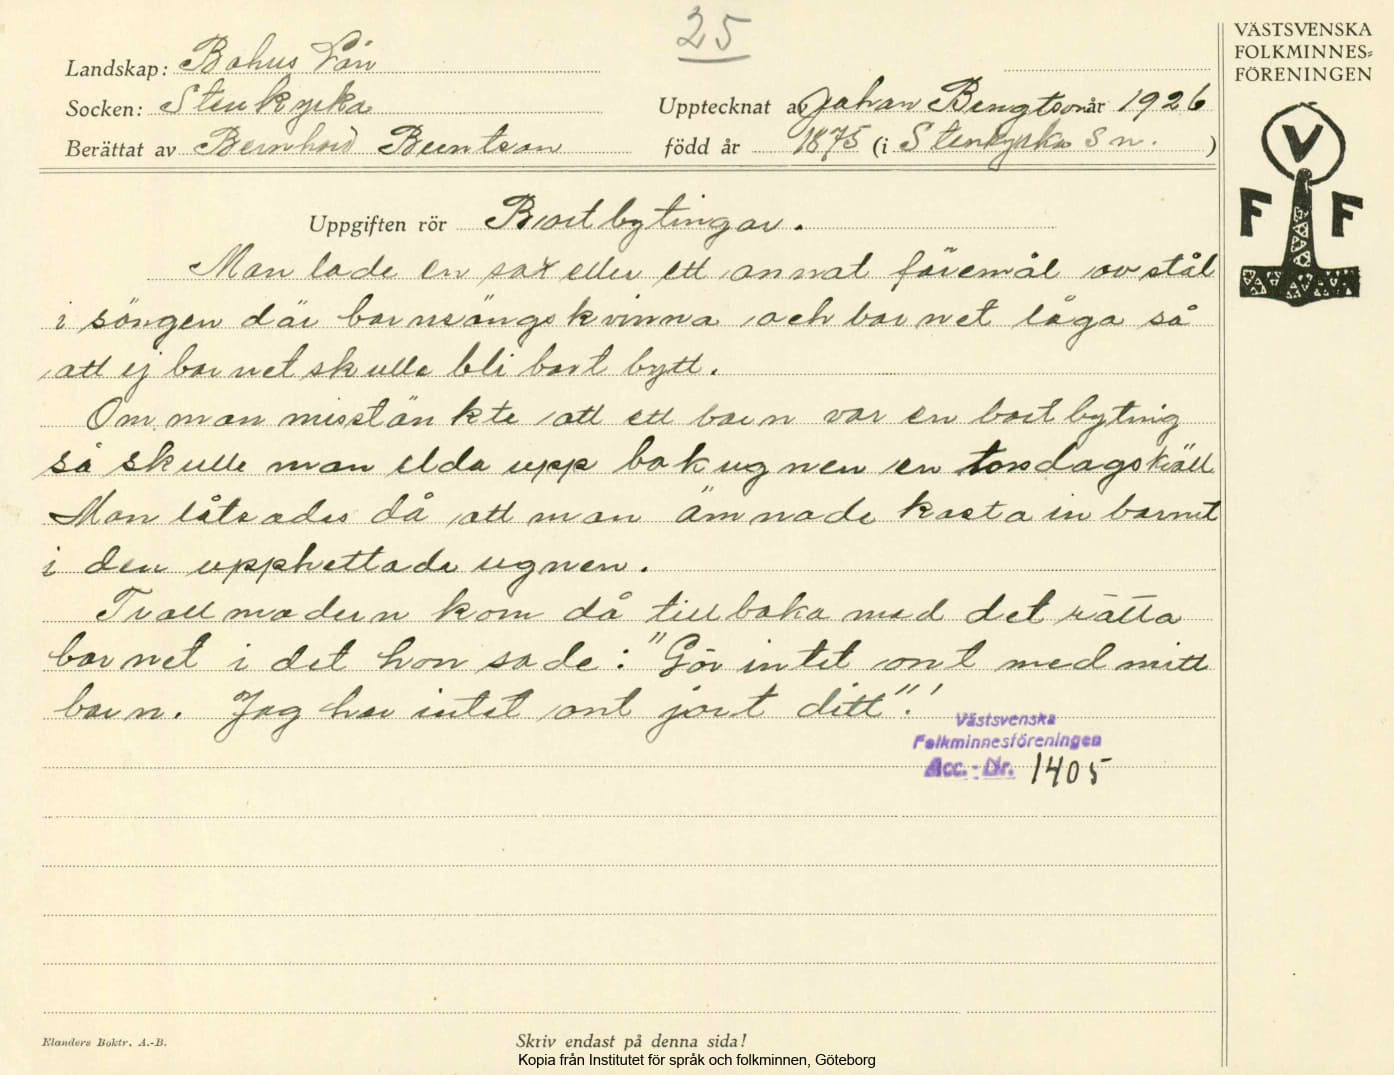 25
VÄSTSVENSKA
FOLKMINNES=
FÖRENINGEN
V
F F
Landskap: Bohus Län
Socken: Stenkyrka
Upptecknat av Johan Bengtson år 1926
Berättat av Bernhard Berntson
född år 1875 (i Stenkyrka Sn. )
Uppgiften rör Bortbytingar.
Man lade en sax eller ett annat föremål av stål
i sängen där barnsängskvinna och barnet låga så
att ej barnet skulle bli bort bytt.
Om man misstänkte att ett barn var en bortbyting
så skulle man elda upp bakugnen en torsdagskväll
Man låtsades då att man ämnade kasta in barnet
i den upphettade ugnen.
Trollmodern kom då tillbaka med det rätta
barnet i det hon sade: "Gör intet ont med mitt
barn. Jag har intet ont jort ditt"!
Västsvenska
Folkminnesföreningen
Acc. - Nr. 1405
Elanders Boktr. A.-B.
Skriv endast på denna sida!
Kopia från Institutet för språk och folkminnen, Göteborg